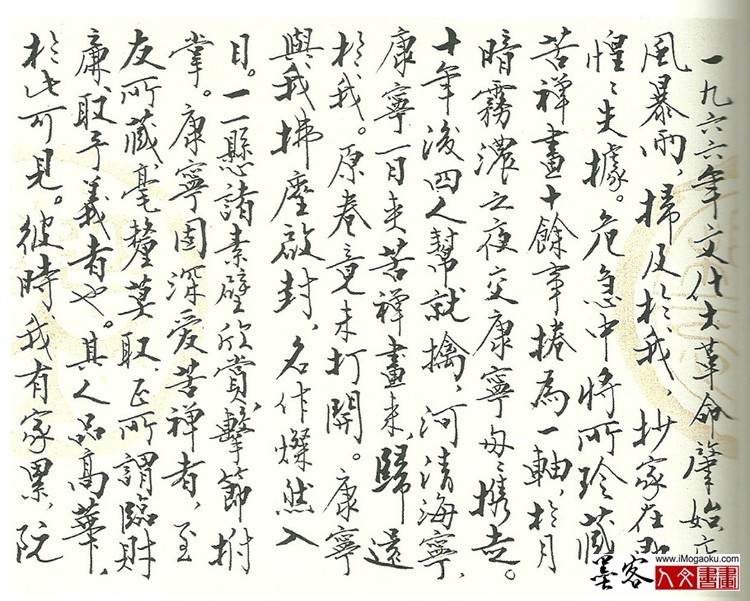 一九六六年文化大革命肇始
風暴雨，掃及於我，抄家在即
惶〻失據。危急中將所珍藏
苦禪畫十餘事捲為一軸，於月
暗霧濃之夜交康寧匆〻携走。
十年後四人幫就擒，河清海寧，
康寧一日夾苦禪畫来，歸還
於我。原卷竟未打開。康寧
與我拂塵啟封，名作燦然入
目。一一懸諸素壁欣賞，擊節拊
掌。康寧固深爱苦禪者，至
友所藏毫釐莫取，正所謂臨財
廉，取予義者也。其人品高華，
於此可見。彼時我有家累，阮
墨客
www.iMogaoku.com
人文書畫